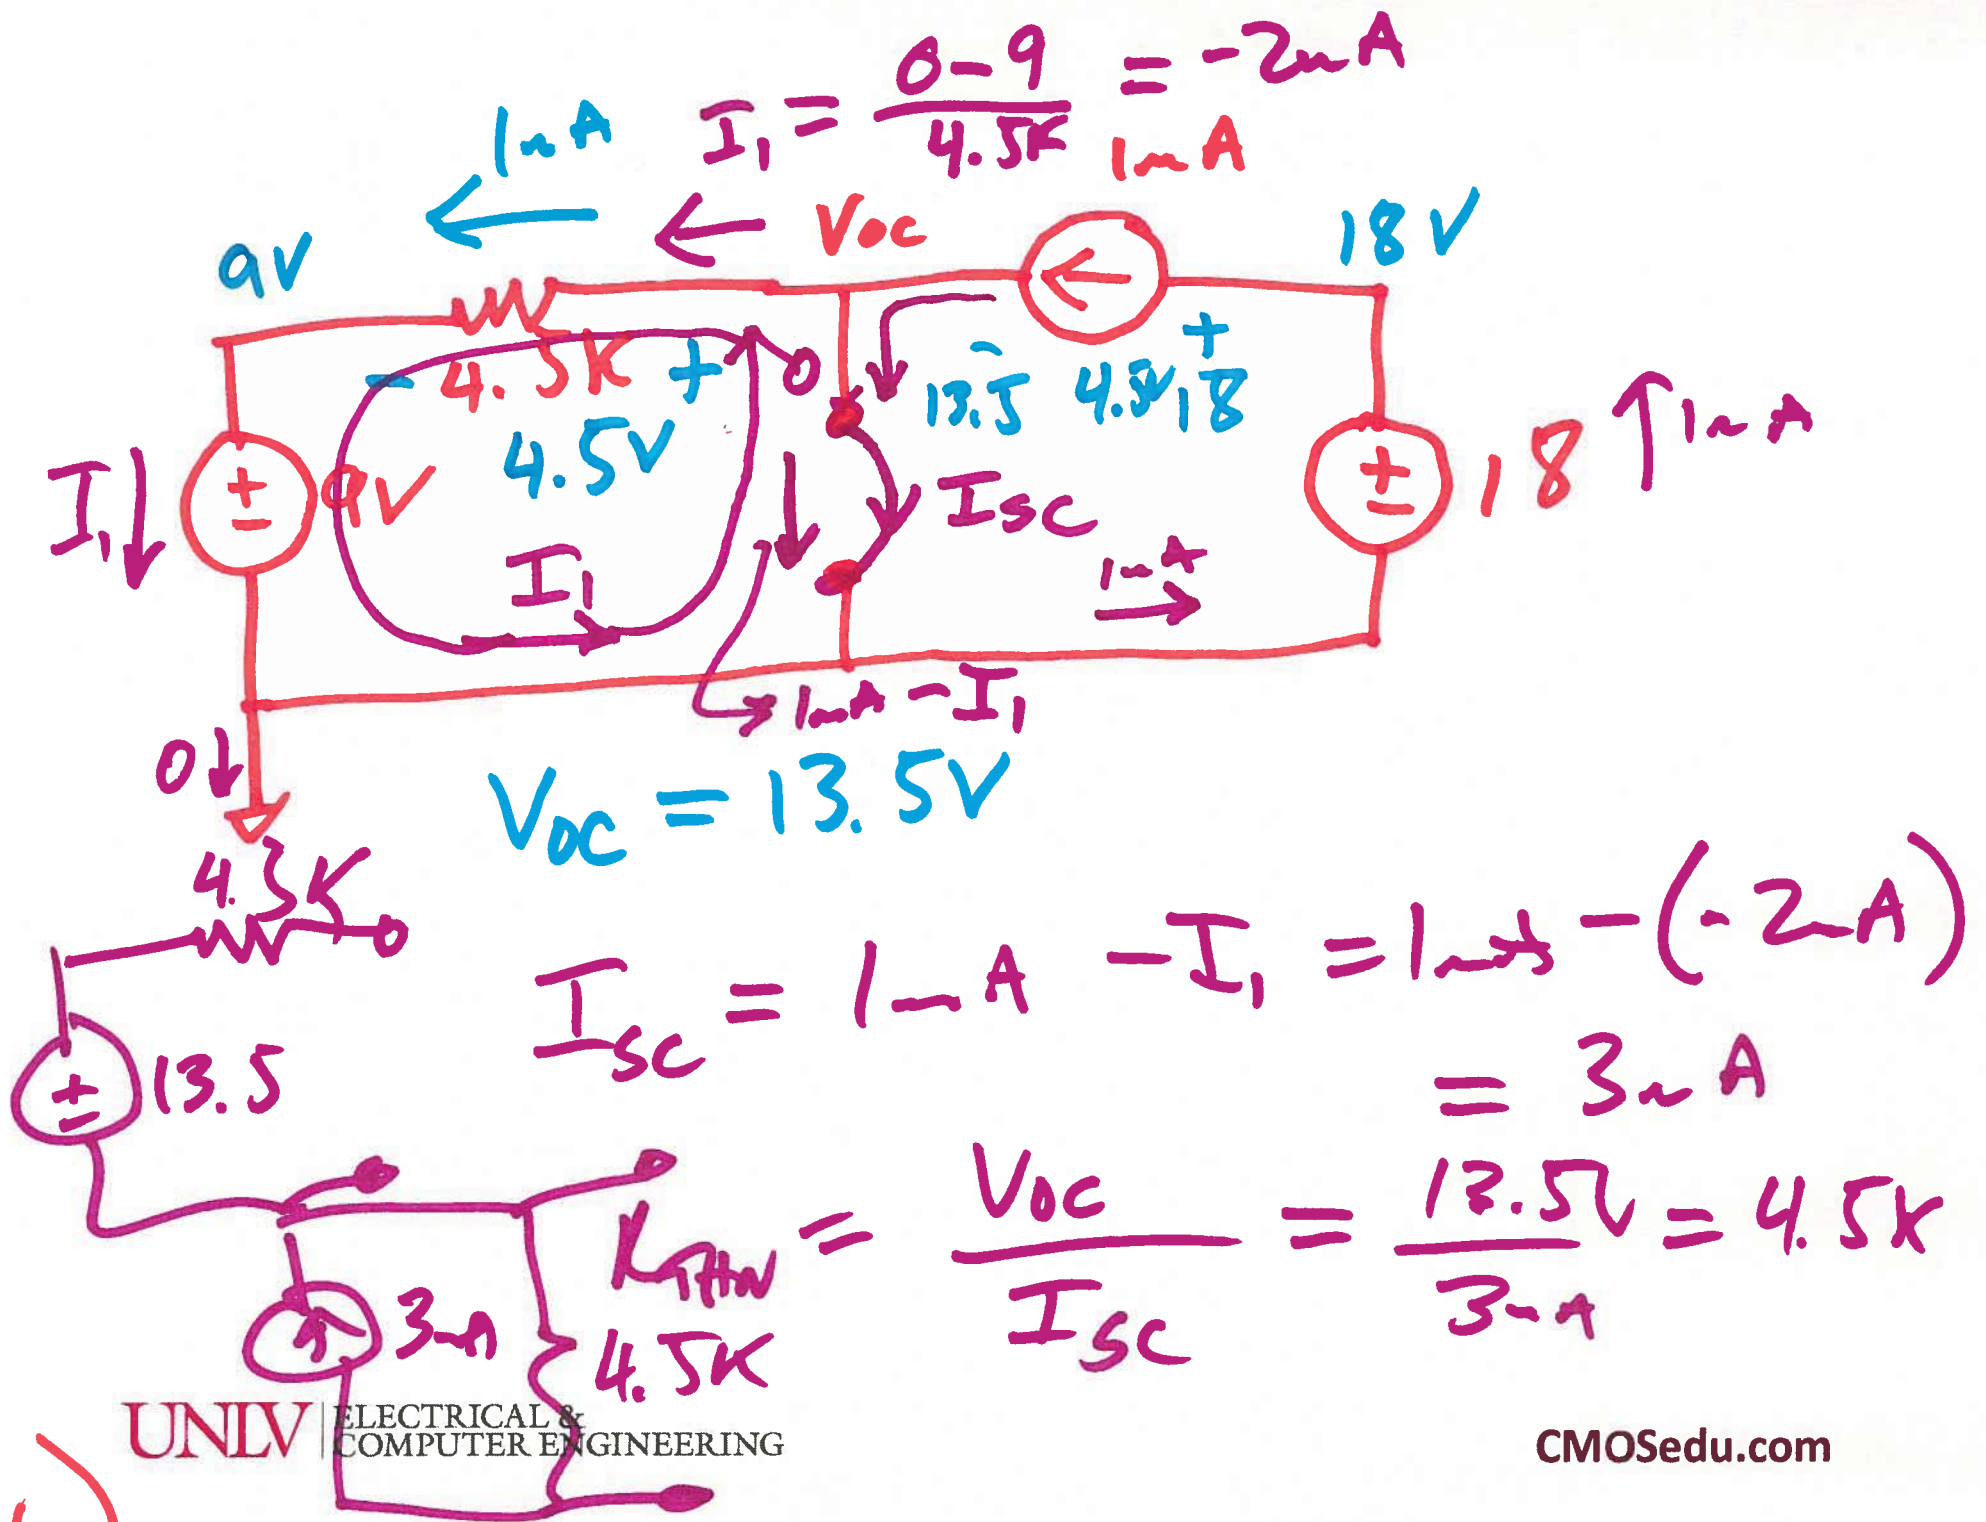 I₁ = 0-9 / 4.5K = -2mA
1mA
1mA
9V
VOC
18V
0
- 4.5K +
4.5V
- +
13.5 4.5V 18
I₁
+ - 9V
ISC
+ - 18
1mA
I₁
1mA
1mA - I₁
0
VOC = 13.5V
4.5K
ISC = 1mA - I₁ = 1mA - (-2mA)
= 3mA
+ - 13.5
RTHN = VOC / ISC = 13.5V / 3mA = 4.5K
3mA
4.5K
UNLV
ELECTRICAL &
COMPUTER ENGINEERING
CMOSedu.com